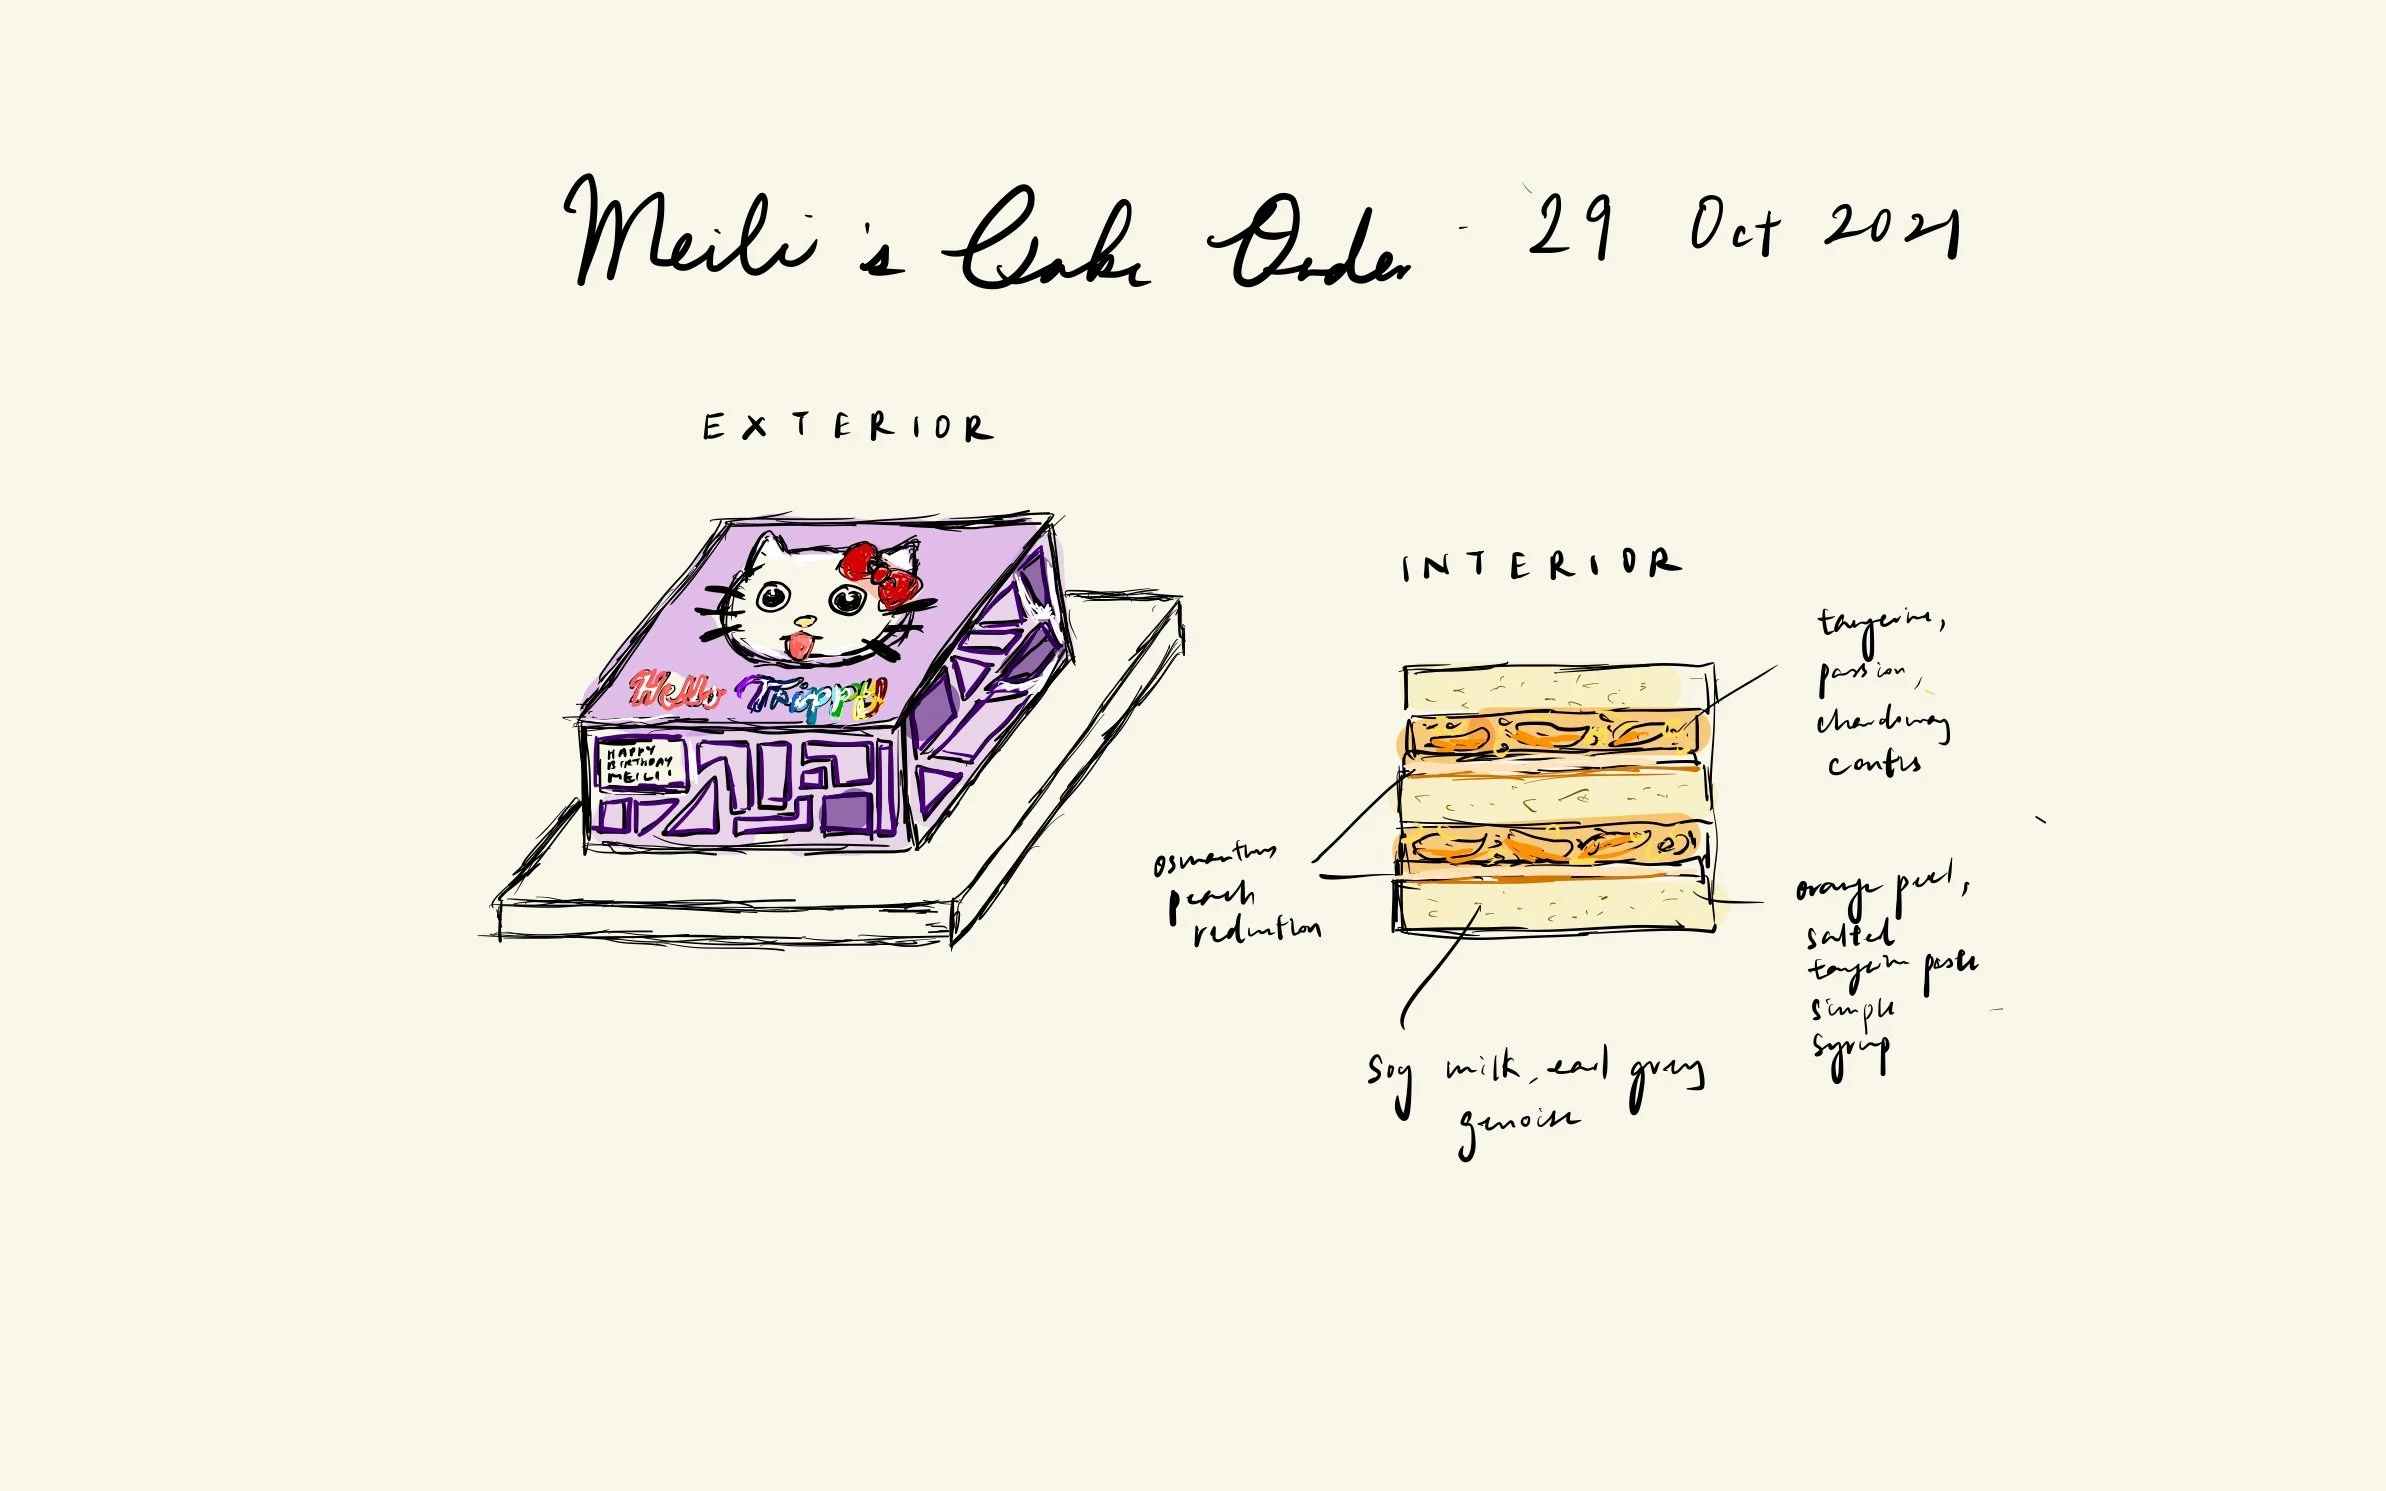 Meili's Cake Order - 29 Oct 2021
EXTERIOR
Hello Trippy
HAPPY
BIRTHDAY
MEILI!
INTERIOR
tangerine,
passion,
chardonnay
confis
osmanthus
peach
reduction
orange peel,
salted
tangerine paste
simple
syrup
soy milk, earl grey
genoise